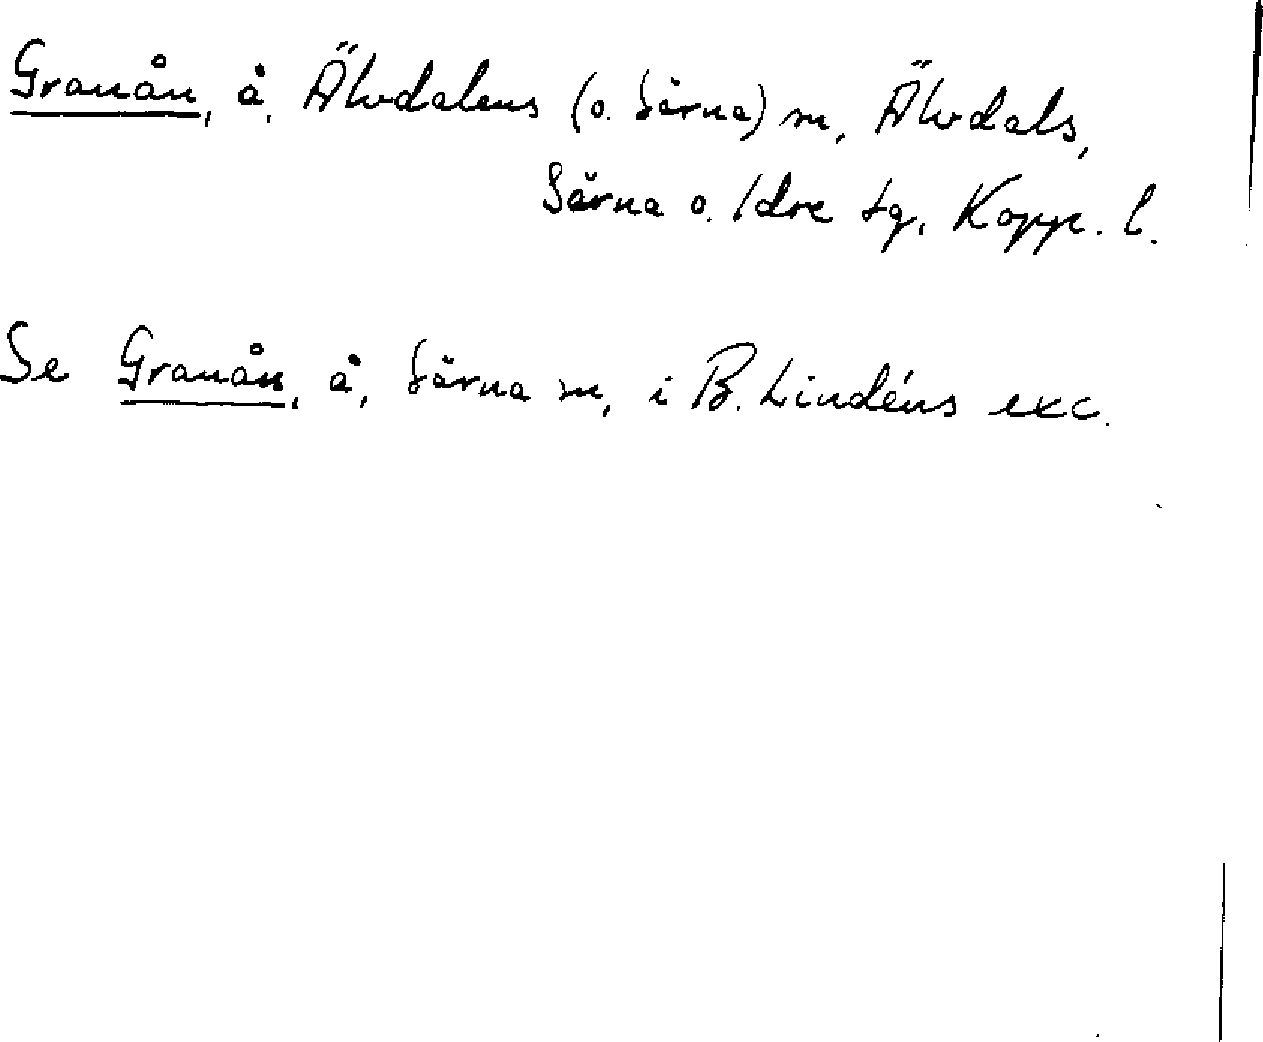 Granån, å, Älvdalens (o. Särna) sn, Älvdals,
Särna o. Idre tg, Kopp. l.
Se Granån, å, Särna sn, i B. Lindéns exc.